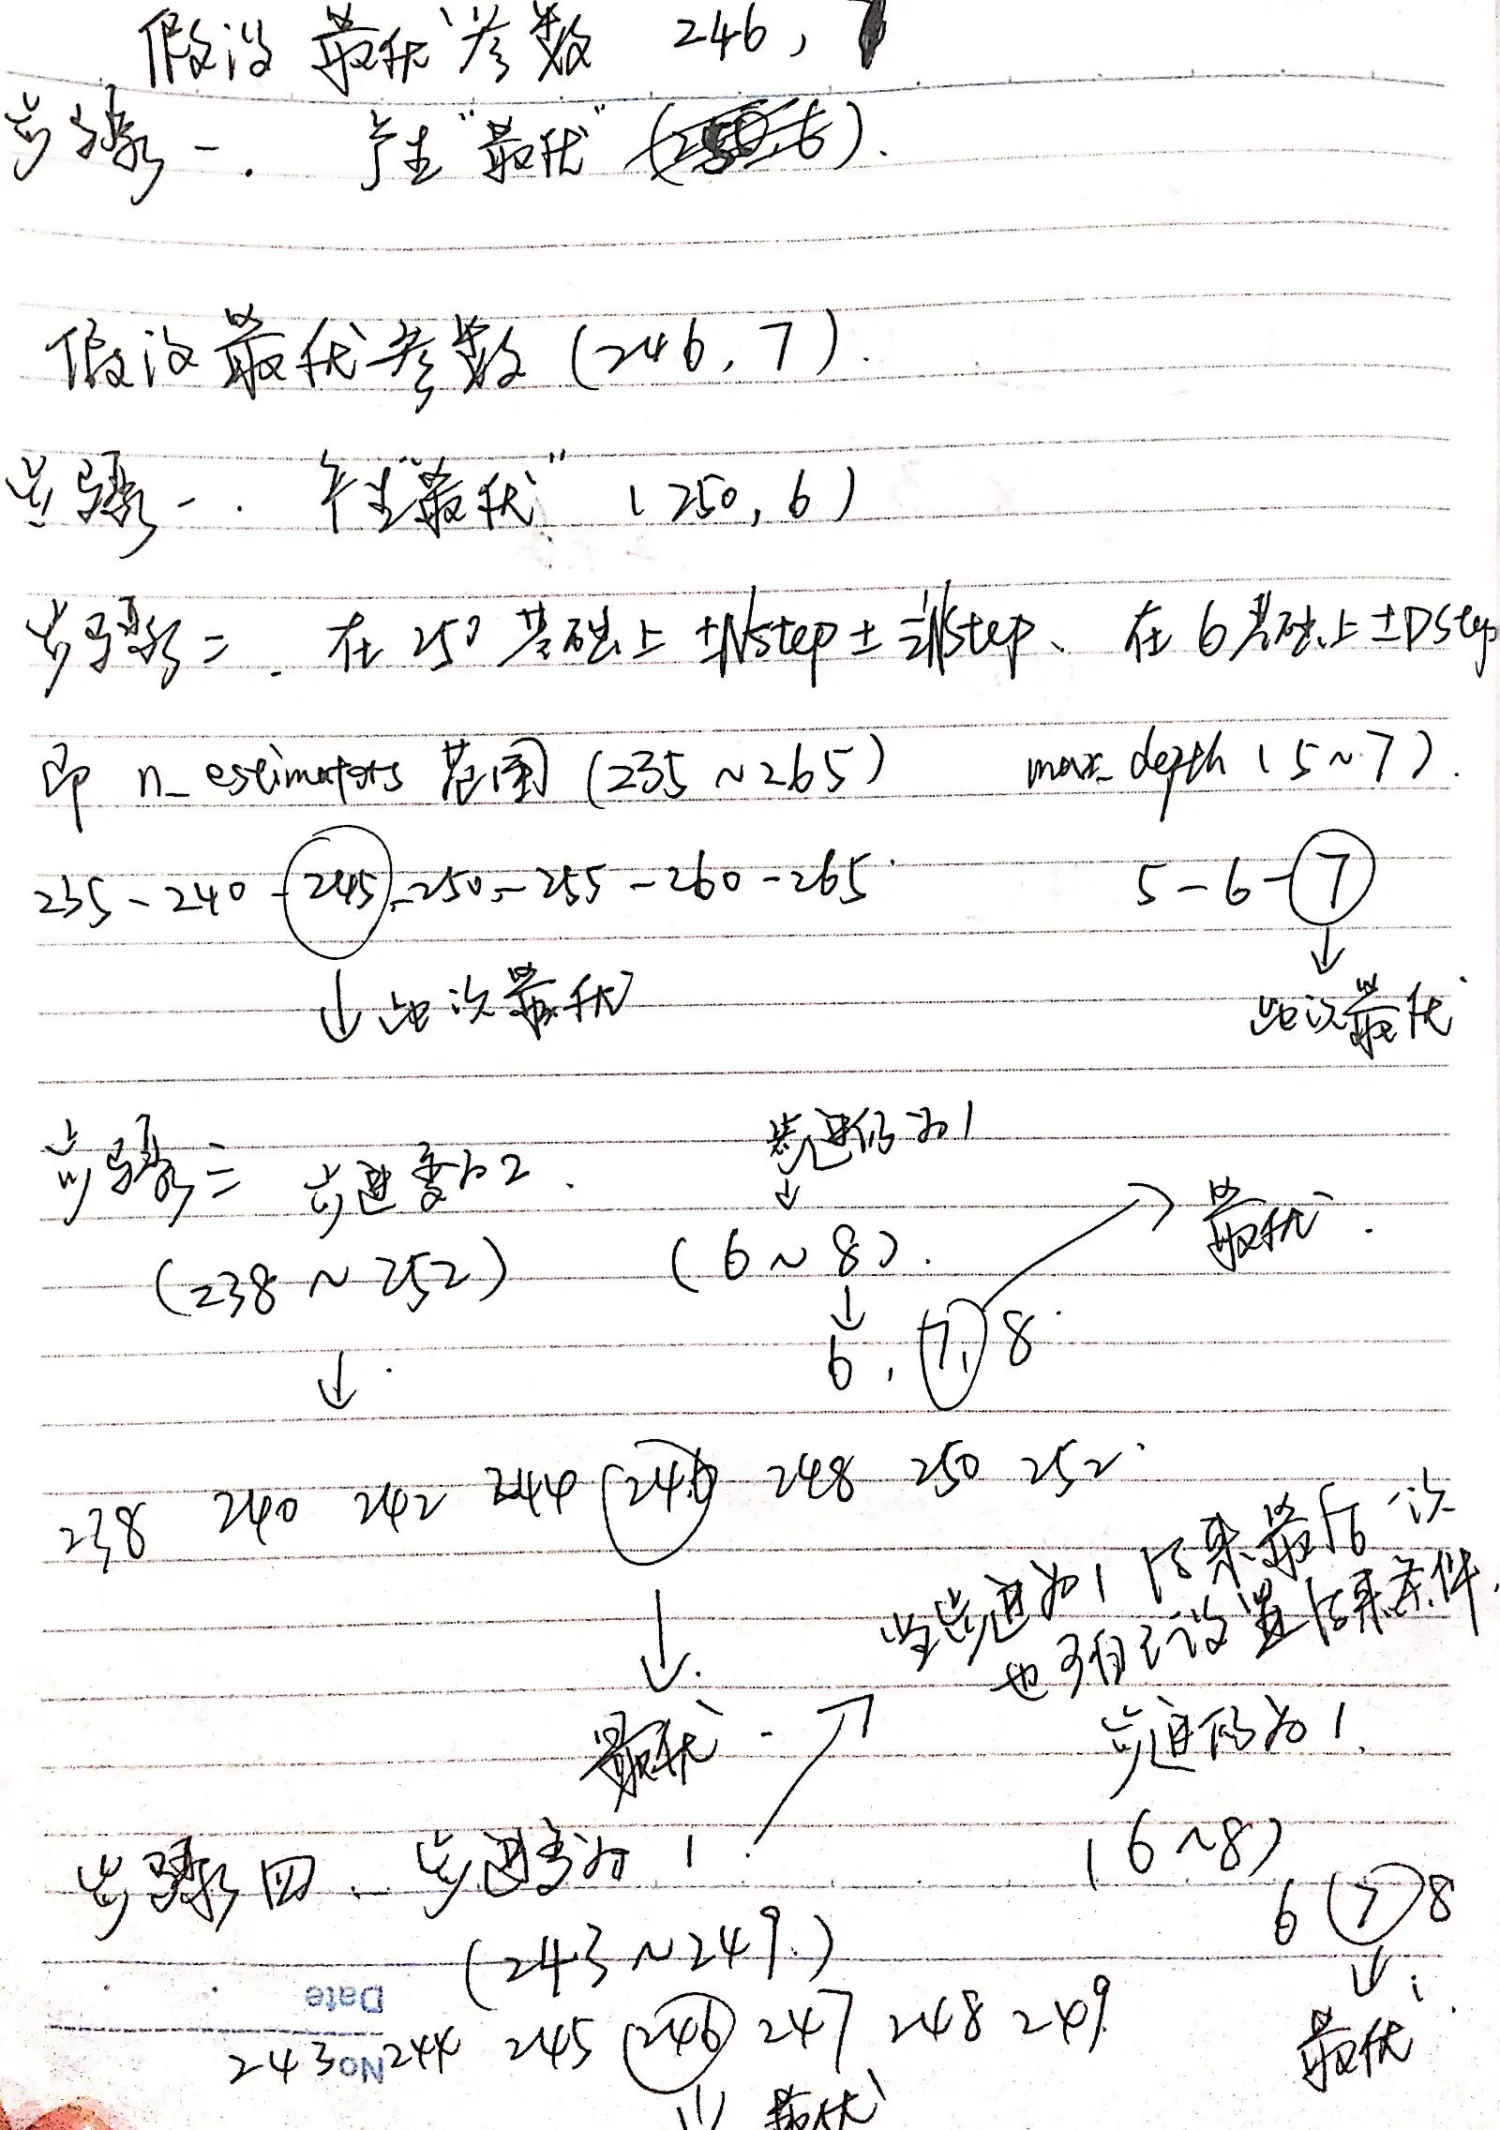 假设 最优参数 246,
步骤一. 产生"最优"
假设最优参数 (246, 7).
步骤一. 产生"最优" (250, 6)
步骤二. 在250基础上 ±Nstep ± Nstep、在6基础上 ±DStep
即 n_estimators 范围 (235 ~ 265) max_depth (5 ~ 7).
235 - 240 - 245 - 250 - 255 - 260 - 265 5 - 6 - 7
↓ 此次最优 ↓
此次最优
步进仍为1
步骤三 步进变为2. ↓ 最优.
(238 ~ 252) (6 ~ 8).
↓ ↓
6, 7, 8
238 240 242 244 246 248 250 252
↓ 当步进为1 结束最后一次
也可自己设置结束条件,
最优. 步进仍为1.
步骤四、步进变为1. (6 ~ 8)
(243 ~ 249.) 6 7 8
Date ↓
243 244 245 246 247 248 249 最优
No
最优